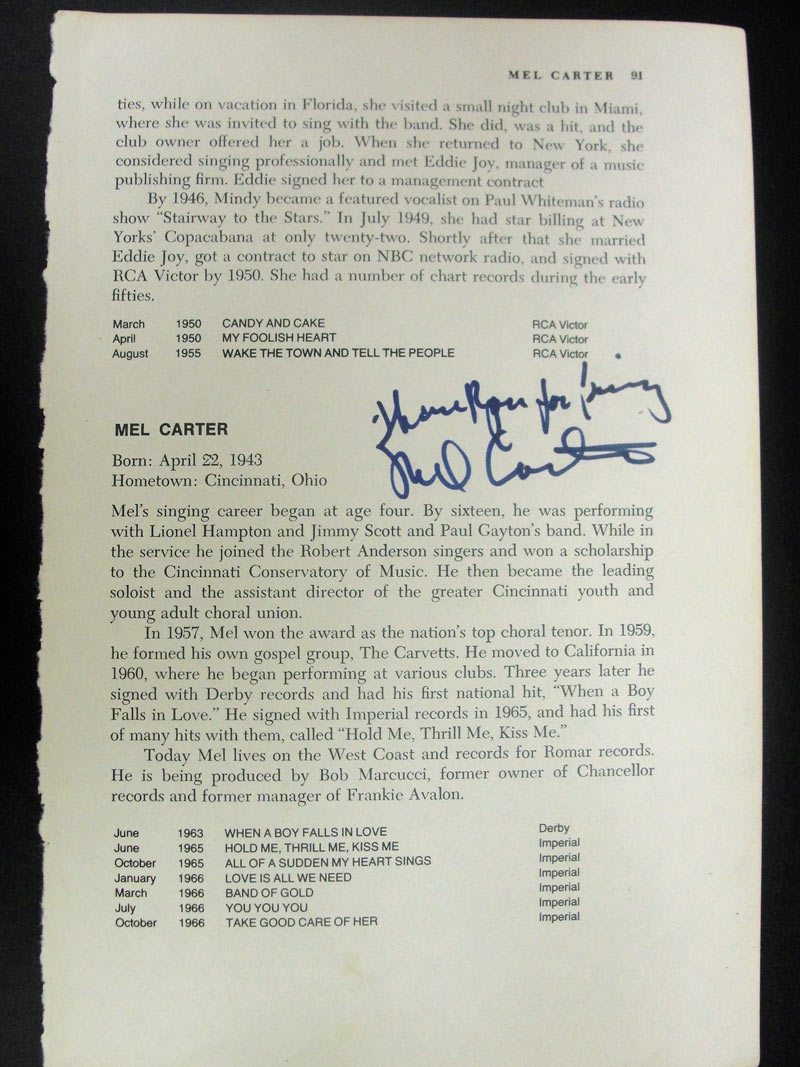 MEL CARTER 91
ties, while on vacation in Florida, she visited a small night club in Miami,
where she was invited to sing with the band. She did, was a hit, and the
club owner offered her a job. When she returned to New York, she
considered singing professionally and met Eddie Joy, manager of a music
publishing firm. Eddie signed her to a management contract
By 1946, Mindy became a featured vocalist on Paul Whiteman's radio
show "Stairway to the Stars." In July 1949, she had star billing at New
Yorks' Copacabana at only twenty-two. Shortly after that she married
Eddie Joy, got a contract to star on NBC network radio, and signed with
RCA Victor by 1950. She had a number of chart records during the early
fifties.
March 1950 CANDY AND CAKE RCA Victor
April 1950 MY FOOLISH HEART RCA Victor
August 1955 WAKE THE TOWN AND TELL THE PEOPLE RCA Victor
Thank You for
Mel Carter
MEL CARTER
Born: April 22, 1943
Hometown: Cincinnati, Ohio
Mel's singing career began at age four. By sixteen, he was performing
with Lionel Hampton and Jimmy Scott and Paul Gayton's band. While in
the service he joined the Robert Anderson singers and won a scholarship
to the Cincinnati Conservatory of Music. He then became the leading
soloist and the assistant director of the greater Cincinnati youth and
young adult choral union.
In 1957, Mel won the award as the nation's top choral tenor. In 1959,
he formed his own gospel group, The Carvetts. He moved to California in
1960, where he began performing at various clubs. Three years later he
signed with Derby records and had his first national hit, "When a Boy
Falls in Love." He signed with Imperial records in 1965, and had his first
of many hits with them, called "Hold Me, Thrill Me, Kiss Me."
Today Mel lives on the West Coast and records for Romar records.
He is being produced by Bob Marcucci, former owner of Chancellor
records and former manager of Frankie Avalon.
June 1963 WHEN A BOY FALLS IN LOVE Derby
June 1965 HOLD ME, THRILL ME, KISS ME Imperial
October 1965 ALL OF A SUDDEN MY HEART SINGS Imperial
January 1966 LOVE IS ALL WE NEED Imperial
March 1966 BAND OF GOLD Imperial
July 1966 YOU YOU YOU Imperial
October 1966 TAKE GOOD CARE OF HER Imperial